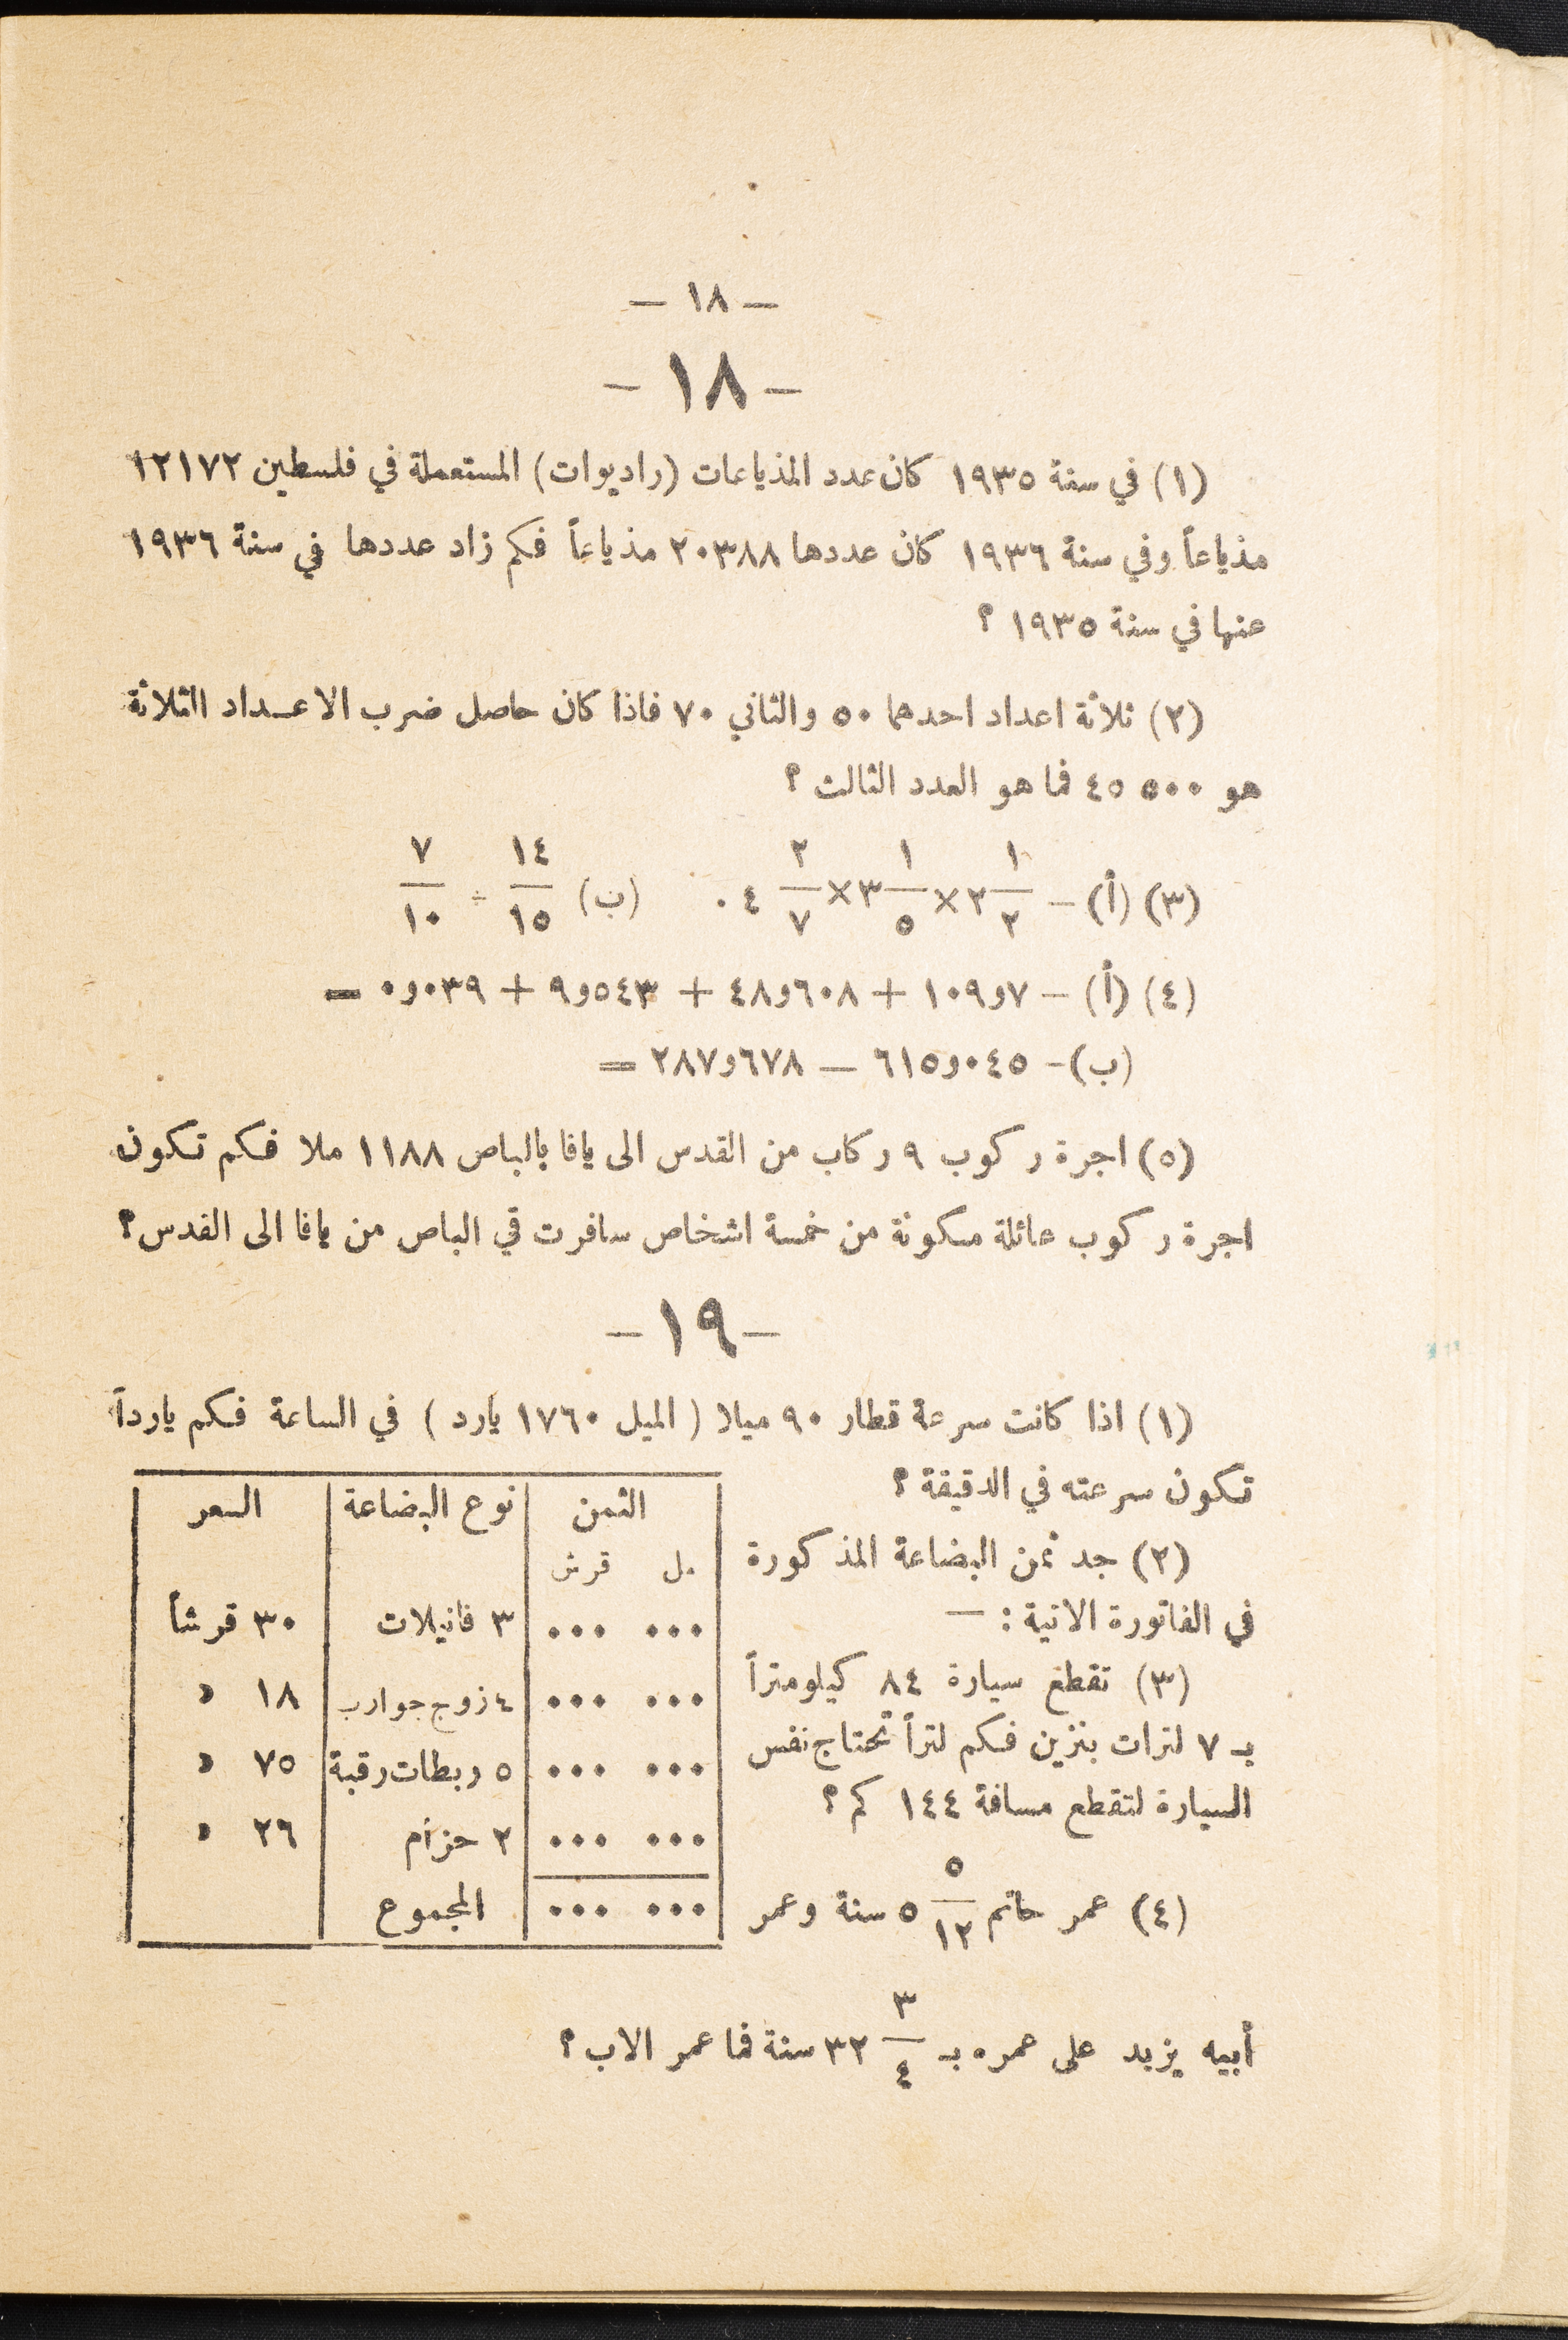 — ١٨ —
— ١٨ —
(١) في سنة ١٩٣٥ كان عدد المذياعات (راديوات) المستعملة في فلسطين ١٢١٧٢
مذياعاً وفي سنة ١٩٣٦ كان عددها ٢٠٣٨٨ مذياعاً فكم زاد عددها في سنة ١٩٣٦
عنها في سنة ١٩٣٥ ؟
(٢) ثلاثة اعداد احدهما ٥٠ والثاني ٧٠ فاذا كان حاصل ضرب الاعداد الثلاثة
هو ٥٠٠ ٤٥ فما هو العدد الثالث ؟
(٣) (أ) — ٢ ١/٢ × ٣ ١/٥ × ٤ ٢/٧ . (ب) ١٤/١٥ ÷ ٧/١٠
(٤) (أ) — ١٠٩و٧ + ٤٨و٦٠٨ + ٩و٥٤٣ + ٠و٠٣٩ =
(ب) — ٦١٥و٠٤٥ — ٢٨٧و٦٧٨ =
(٥) اجرة ركوب ٩ ركاب من القدس الى يافا بالباص ١١٨٨ ملا فكم تكون
اجرة ركوب عائلة مكونة من خمسة اشخاص سافرت في الباص من يافا الى القدس ؟
— ١٩ —
(١) اذا كانت سرعة قطار ٩٠ ميلا ( الميل ١٧٦٠ يارد ) في الساعة فكم يارداً
تكون سرعته في الدقيقة ؟
(٢) جد ثمن البضاعة المذكورة
في الفاتورة الاتية : —
(٣) تقطع سيارة ٨٤ كيلومتراً
بـ ٧ لترات بنزين فكم لتراً تحتاج نفس
السيارة لتقطع مسافة ١٤٤ كم ؟
(٤) عمر حاتم ٥ ٥/١٢ سنة وعمر
الثمن نوع البضاعة السعر
مل قرش
... ... ٣ فانيلات ٣٠ قرشاً
... ... ٤ زوج جوارب ١٨ »
... ... ٥ ربطات رقبة ٧٥ »
... ... ٢ حزام ٢٦ »
... ... المجموع
أبيه يزيد على عمره بـ ٣٢ ٣/٤ سنة فما عمر الاب ؟